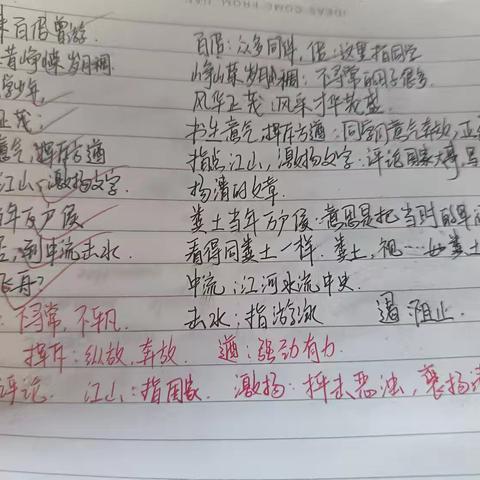 IDEAS COME FROM
来百侣曾游 百侣：众多同伴，侣：这里指同学
昔峥嵘岁月稠 峥嵘岁月稠：不寻常的日子很多
学少年， 风华正茂：风采才华茂盛
正茂； 书生意气，挥斥方遒：同学们意气奔放，正
意气，挥斥方遒 指点江山，激扬文字：评论国家大事，写
江山，激扬文字 扬清的文章
当年万户侯 粪土当年万户侯：意思是把当时的军阀
否，到中流击水 看得同粪土一样．粪土，视…如粪土
飞舟？ 中流：江河水流中央
：不寻常，不平凡． 击水：指游泳 遏：阻止．
挥斥：纵放，奔放． 遒：强劲有力．
评论． 江山：指国家． 激扬：抨击恶浊，褒扬